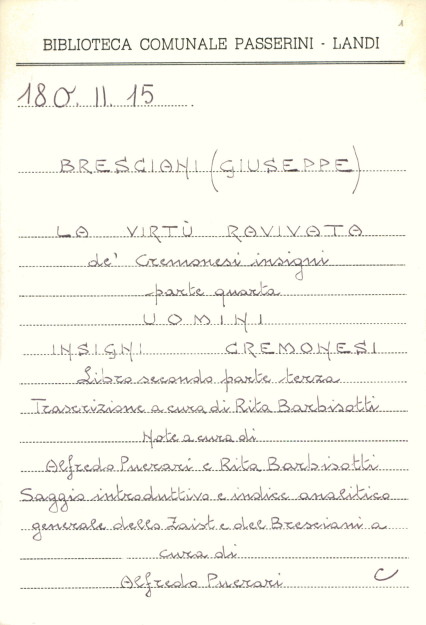 1
BIBLIOTECA COMUNALE PASSERINI - LANDI
180. II. 15
BRESCIANI (GIUSEPPE)
LA VIRTÙ RAVIVATA
de' Cremonesi insigni
parte quarta
UOMINI
INSIGNI CREMONESI
Libro secondo parte terza
Trascrizione a cura di Rita Barbisotti
Note a cura di
Alfredo Puerari e Rita Barbisotti
Saggio introduttivo e indice analitico
generale dello Zaist e del Bresciani a
cura di
Alfredo Puerari C